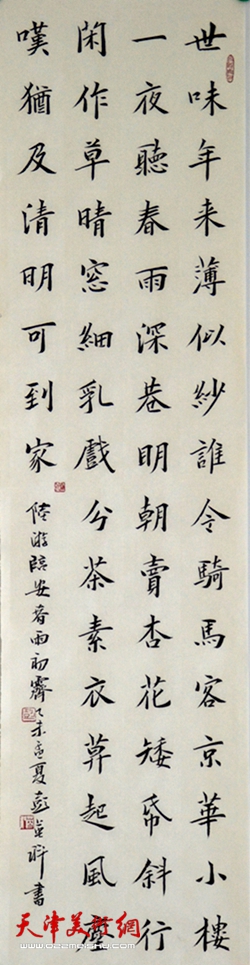 世味年来薄似紗誰令騎馬客京華小樓
一夜聽春雨深巷明朝賣杏花矮帋斜行
閑作草晴窓細乳戲分茶素衣莫起風塵
嘆猶及清明可到家
陸游臨安春雨初霽乙未孟夏彭科書
天津美術網
www.022meishu.com